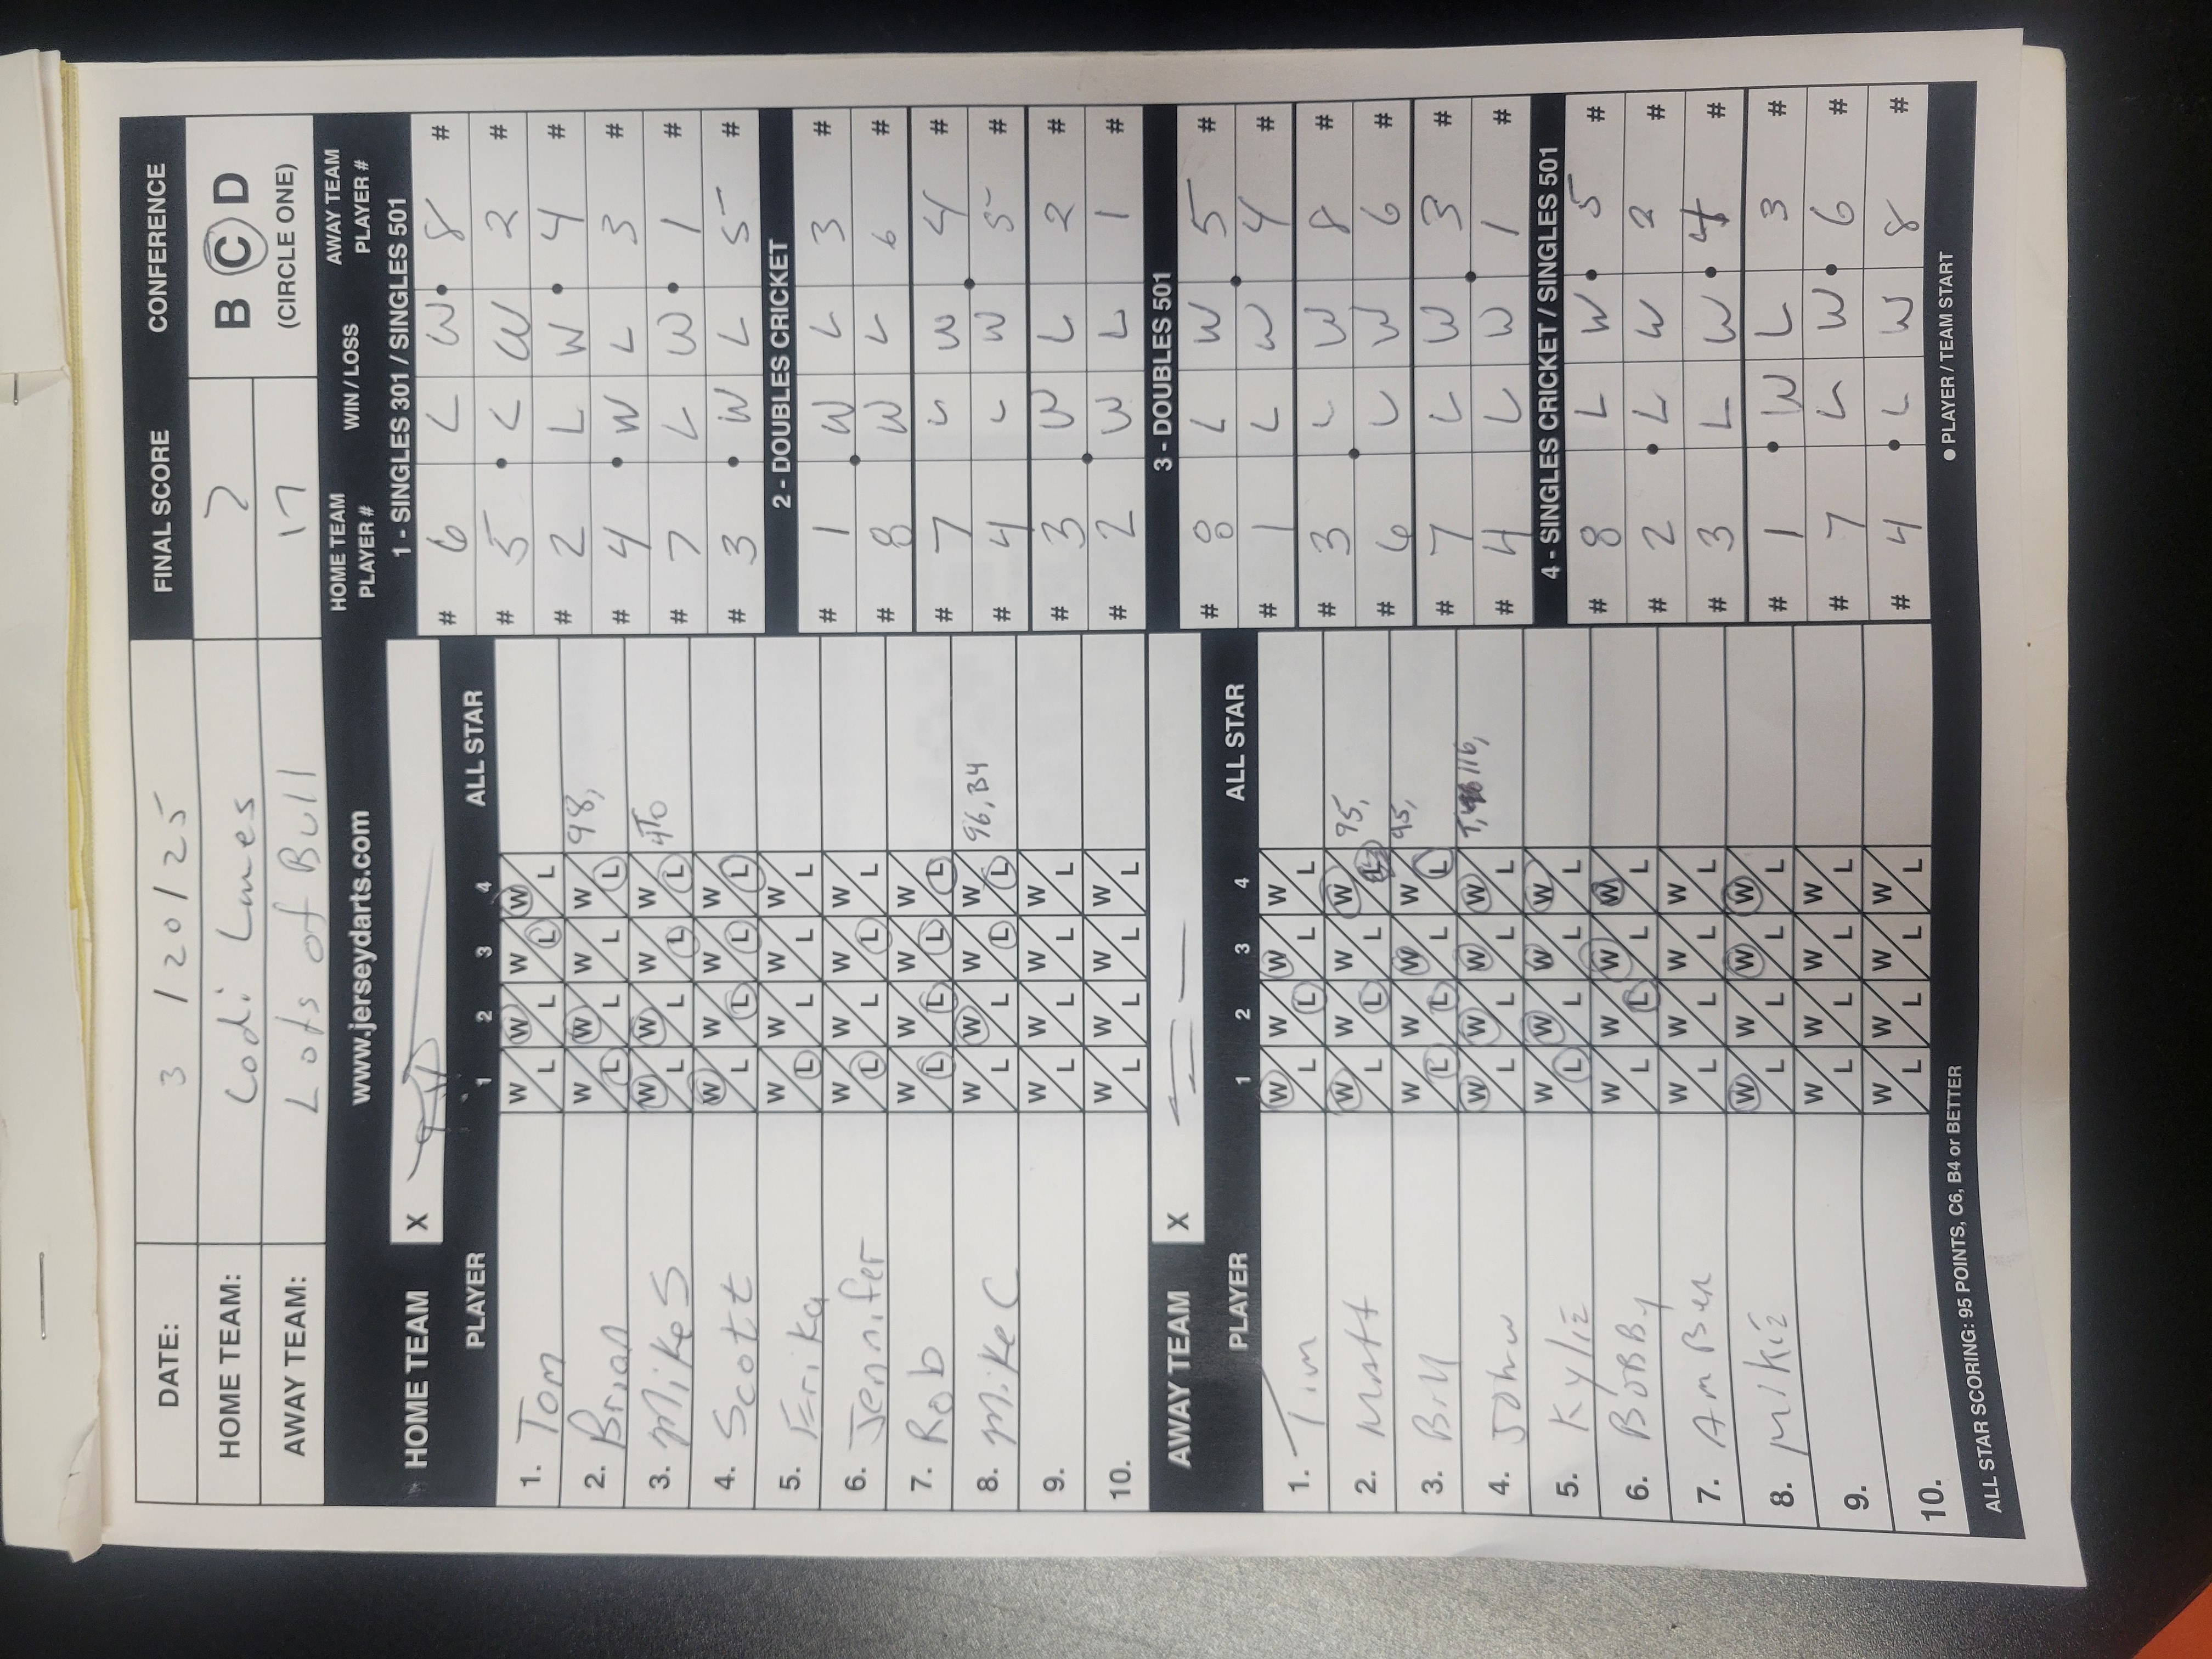 DATE: 3 / 20 / 25 FINAL SCORE CONFERENCE
HOME TEAM: Lodi Lanes 7 B C D
AWAY TEAM: Lots of Bull 17 (CIRCLE ONE)
www.jerseydarts.com
HOME TEAM X
PLAYER 1 2 3 4 ALL STAR
1. Tom W L W L W L W L
2. Brian W L W L W L W L 98,
3. Mike S W L W L W L W L 4T0
4. Scott W L W L W L W L
5. Erika W L W L W L W L
6. Jennifer W L W L W L W L
7. Rob W L W L W L W L
8. Mike C W L W L W L W L 96, B4
9. W L W L W L W L
10. W L W L W L W L
AWAY TEAM X
PLAYER 1 2 3 4 ALL STAR
1. Tim W L W L W L W L
2. Matt W L W L W L W L 95,
3. Bill W L W L W L W L 95,
4. John W L W L W L W L 116,
5. Kylie W L W L W L W L
6. BoBBy W L W L W L W L
7. AmBer W L W L W L W L
8. Mikie W L W L W L W L
9. W L W L W L W L
10. W L W L W L W L
HOME TEAM PLAYER # WIN / LOSS AWAY TEAM PLAYER #
1 - SINGLES 301 / SINGLES 501
# 6 L W 8 #
# 5 L W 2 #
# 2 L W 4 #
# 4 W L 3 #
# 7 L W 1 #
# 3 W L 5 #
2 - DOUBLES CRICKET
# 1 W L 3 #
# 8 W L 6 #
# 7 L W 4 #
# 4 L W 5 #
# 3 W L 2 #
# 2 W L 1 #
3 - DOUBLES 501
# 8 L W 5 #
# 1 L W 4 #
# 3 L W 8 #
# 6 L W 6 #
# 7 L W 3 #
# 4 L W 1 #
4 - SINGLES CRICKET / SINGLES 501
# 8 L W 5 #
# 2 L W 2 #
# 3 L W 4 #
# 1 W L 3 #
# 7 L W 6 #
# 4 L W 8 #
ALL STAR SCORING: 95 POINTS, C6, B4 or BETTER ● PLAYER / TEAM START